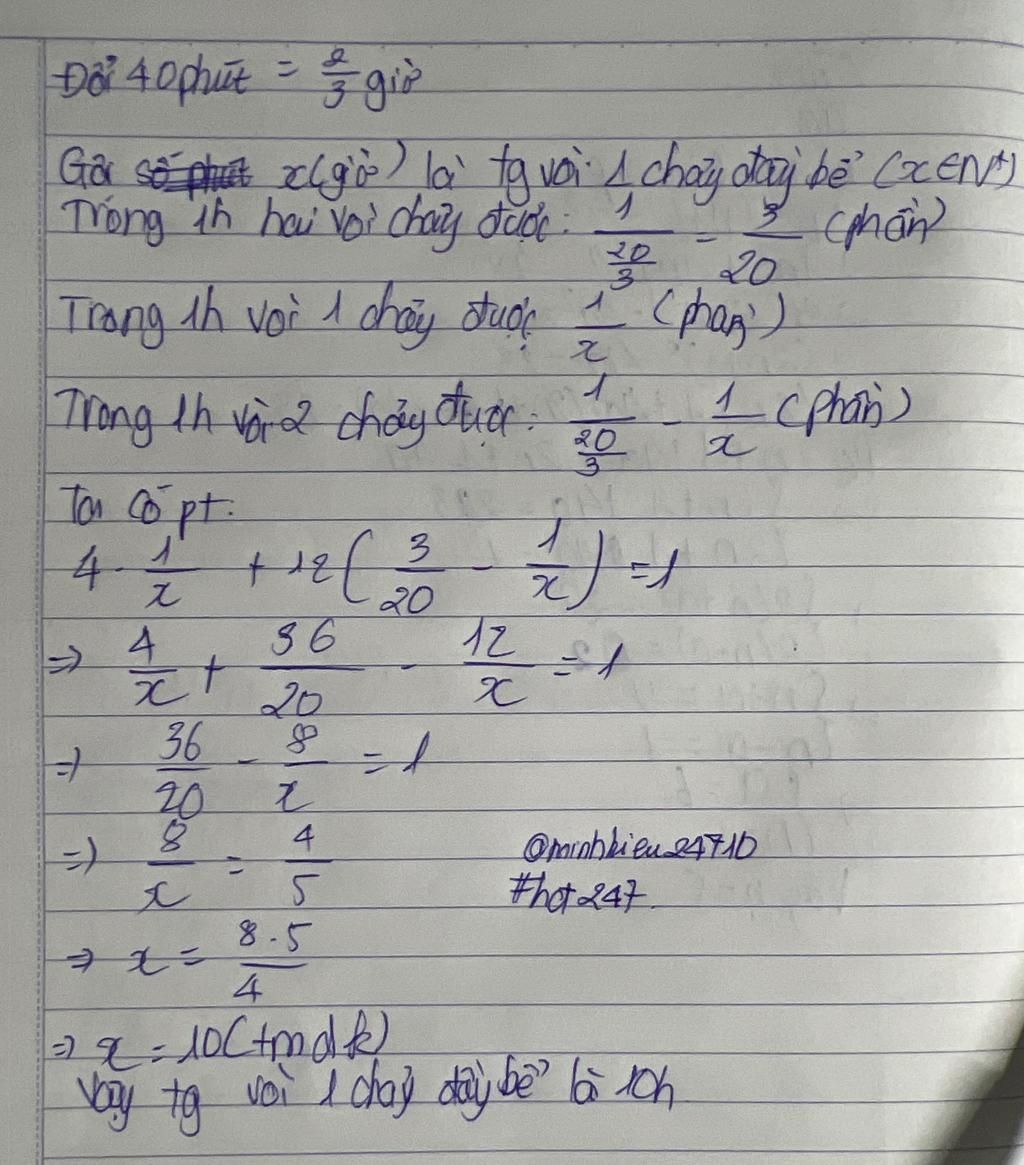 Đổi 40 phút = 2/3 giờ
Gọi số phút x(giờ) là tg vòi 1 chảy đầy bể (x ∈ N*)
Trong 1h hai vòi chảy được: 1/(20/3) = 3/20 (phần)
Trong 1h vòi 1 chảy được 1/x (phần)
Trong 1h vòi 2 chảy được: 1/(20/3) - 1/x (phần)
Ta có pt:
4. 1/x + 12(3/20 - 1/x) = 1
=> 4/x + 36/20 - 12/x = 1
=> 36/20 - 8/x = 1
=> 8/x = 4/5
@minhhieu24710
#hot247.
=> x = 8.5/4
=> x = 10(tmđk)
Vậy tg vòi 1 chảy đầy bể là 10h